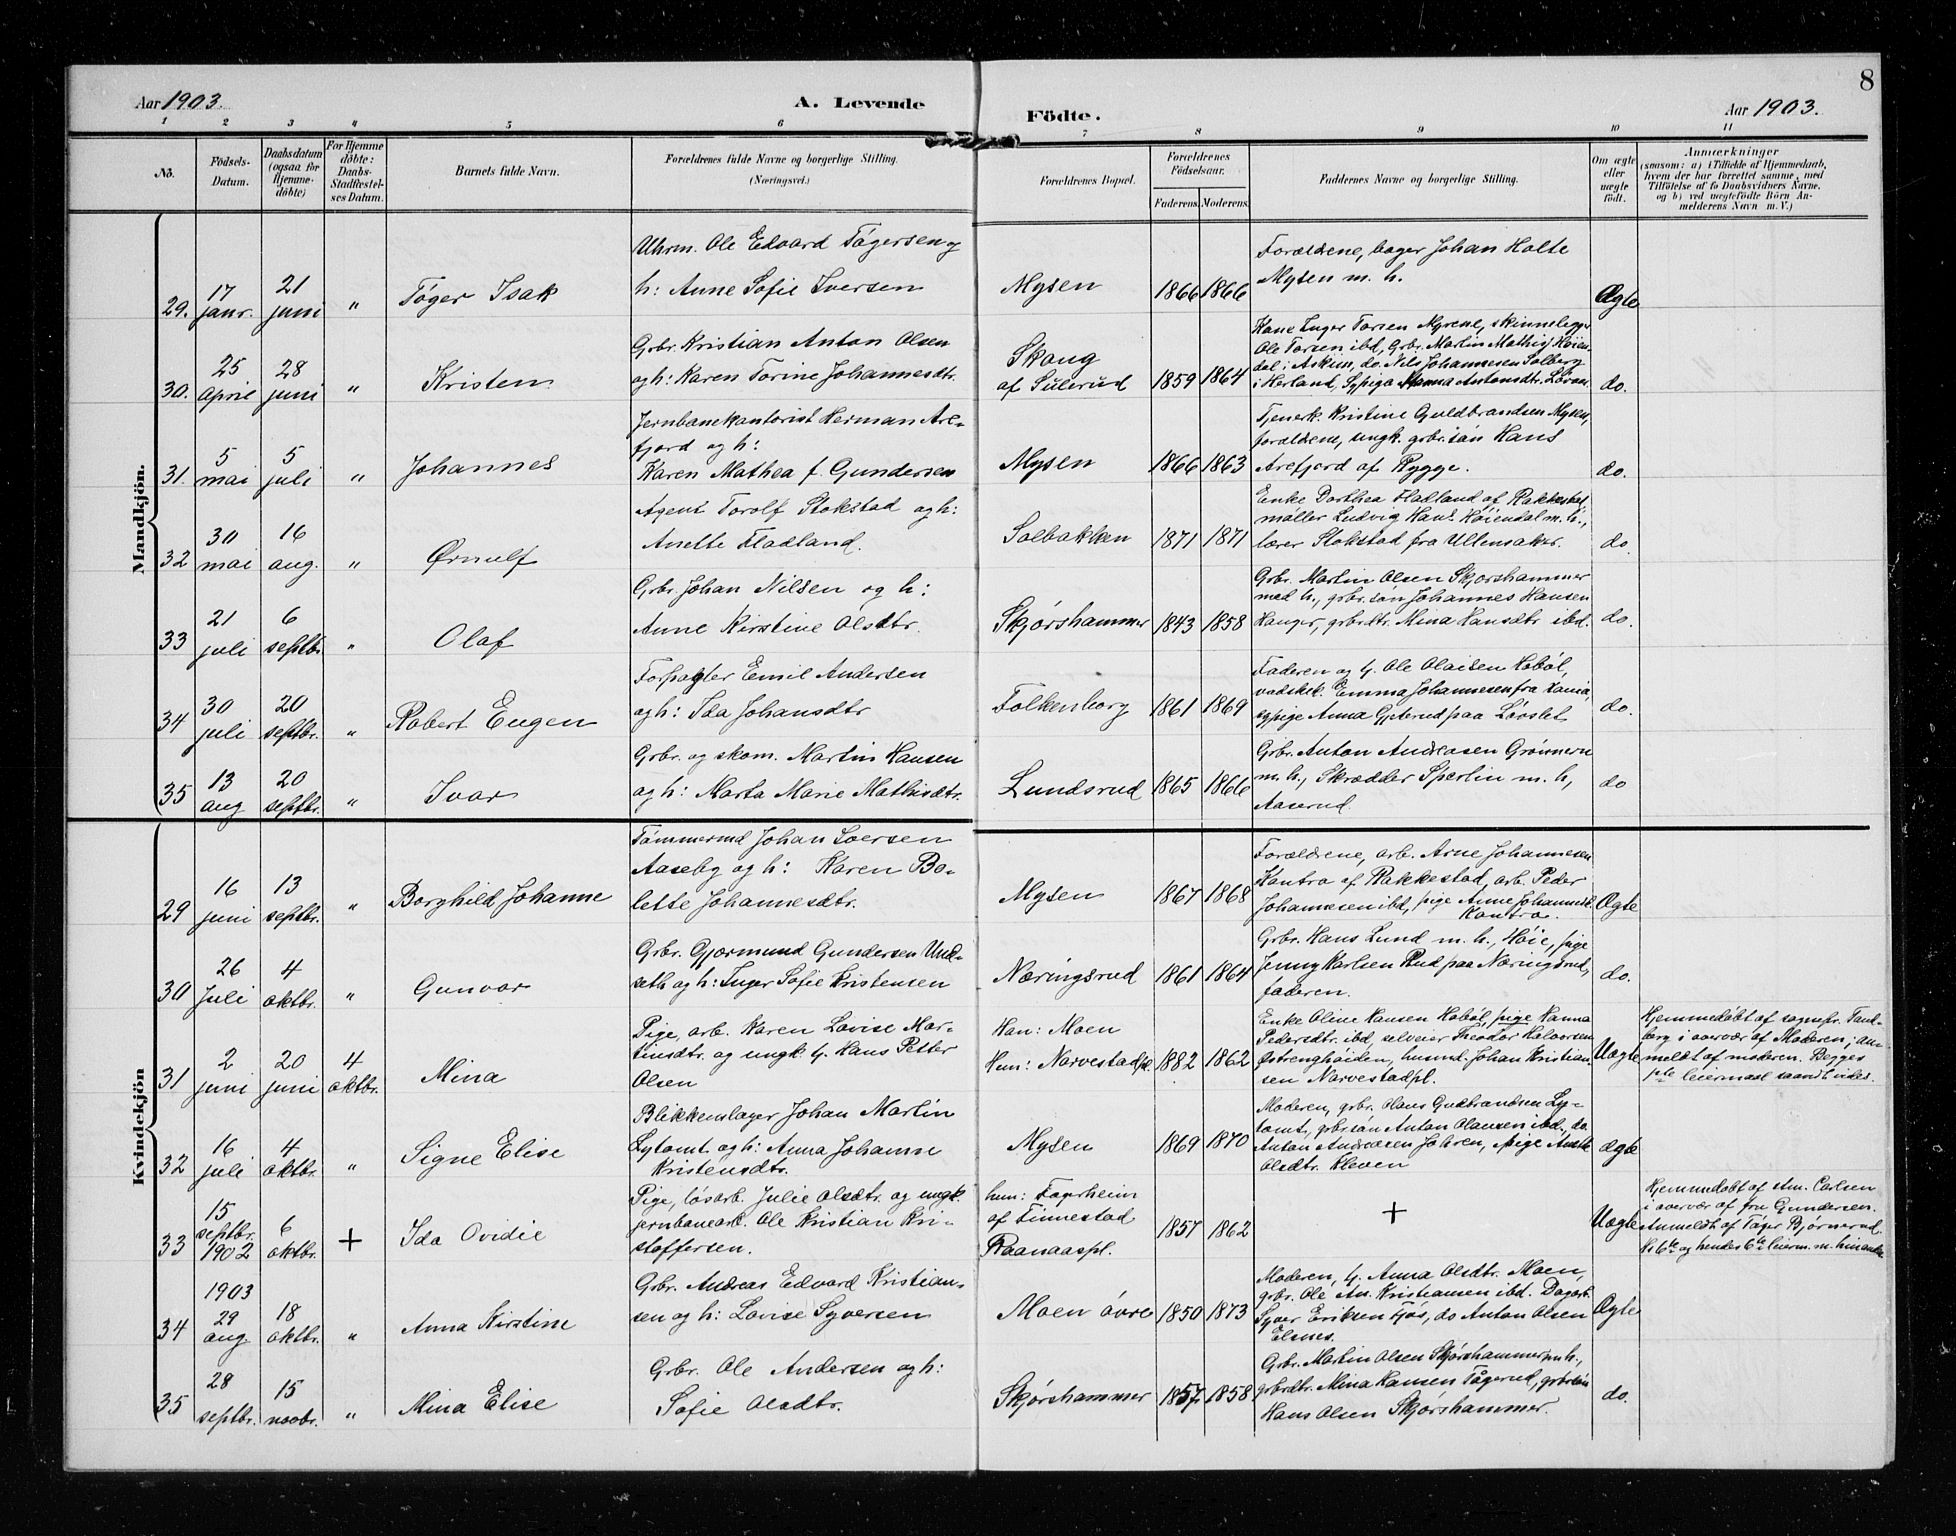 8
Aar 1903.
A. Levende
Födte.
Aar 1903.
1 2 3 4 5 6 7 8 9 10 11
No.
Födsels-
Datum.
Daabsdatum
(ogsaa for
Hjemme-
döbte)
For Hjemme
döbte:
Daabs-
Stadfæstel-
ses Datum.
Barnets fulde Navn.
Forældrenes fulde Navne og borgerlige Stilling.
(Næringsvei.)
Forældrenes Bopæl.
Forældrenes
Födselsaar.
Faderens. Moderens.
Faddernes Navne og borgerlige Stilling.
Om ægte
eller
uægte
födt.
Anmærkninger
(saasom: a) i Tilfælde af Hjemmedaab,
hvem der har forrettet samme, med
Tilföielse af to Daabsvidners Navne,
og b) ved uægtefödte Börn An-
melderens Navn m. V.)
Mandkjön.
29.
17
janr.
21
juni
"
Töger Isak
Uhrm. Ole Edvard Tögersen og
h: Anne Sofie Iversen
Mysen
1866 1866
Forældrene, bager Johan Holte
Mysen m. h.
Ægte
30.
25
april
28
juni
"
Kristen
Grbr. Kristian Anton Olsen
og h: Karen Torine Johannesdtr.
Skaug
af Sulerud
1859 1864
Kone Inger Torsen Myrene, skinnelegger
Ole Torsen ibd, Grbr. Martin Mathis. Höien-
dal i Askim, do. Nils Johannesen Solberg
i Herland, Sypige Hanna Antonsdtr. Lövm.
do.
31.
5
mai
5
juli
"
Johannes
Jernbanekontorist Herman Are-
fjord og h:
Karen Mathea f. Gundersen
Mysen
1866 1863
Tjenerk. Kristine Guldbrandsen Mysen,
forældrene, ungk. grbr.sön Hans
Arefjord af Rygge.
do.
32
30
mai
16
aug.
"
Ørnulf
Agent Torolf Stokstad og h:
Anette Fladland.
Solbakken
1871 1871
Enke Dorthea Fladland af Rakkestad
möller Ludvig Hans. Höiendal m. h.,
lærer Stokstad fra Ullensaker.
do
33
21
juli
6
septbr.
"
Olaf
Grbr. Johan Nilsen og h:
Anne Kirstine Olsdtr.
Skjörshammer
1843 1858
Grbr. Martin Olsen Skjorshammer
med h., grbr.sön Johannes Hansen
Hanger, grbrdtr. Mina Hansdtr ibd.
do.
34
30
juli
20
septbr.
"
Robert Eugen
Forpagter Emil Andersen
og h: Ida Johansdtr
Folkenborg
1861 1869
Faderen og g. Ole Olaisen Haböl,
vadskek. Emma Johannesen fra Xania,
sypige Anna Gjeterud paa Lövslet
do.
35
13
aug
20
septbr.
"
Ivar
Grbr. og skom. Martin Hansen
og h: Marta Marie Mathisdtr.
Lundsrud
1865 1866
Grbr. Anton Andreasen Grönnern
m. h., Skrædder Sperlin m. h,
Aaserud.
do
Kvindekjön
29
16
juni
13
septbr.
"
Borghild Johanne
Tömmermd Johan Iversen
Aaseby og h: Karen Bo-
lette Johannesdtr.
Mysen
1867 1868
Forældrene, arb. Arne Johannesen
Kantro af Rakkestad, arb. Peder
Johannesen ibd, pige Anne Johannesd.
Kantro.
Ægte
30
26
Juli
4
oktbr.
"
Gunvor
Grbr. Gjormund Gundersen Und-
seth og h: Inger Sofie Kristensen
Næringsrud
1861 1864
Grbr. Hans Lund m. h., Höie, pige
Jenny Karlsen Rud paa Næringsrud,
faderen.
do.
31
2
juni
20
juni
4
oktbr.
Mina
Pige, arb. Karen Lovise Mar-
tinsdtr. og ungk. g. Hans Petter
Olsen
Han: Moen
Hun: Narvestadpl.
1882 1862
Enke Oline Hansen Haböl, pige Hanna
Pedersdtr. ibd, selveier Theodor Halvorsen
Østrenghöiden, husmd. Johan Kristian-
sen Narvestadpl.
Uægte
Hjemmedöbt af sognepr. Tand-
berg i overvær af Moderen; an-
meldt af moderen. Begges
1ste leiermaal saavidt vides.
32
16
juli
4
oktbr.
"
Signe Elise
Blikkenslager Johan Martin
Lytomt og h: Anna Johanne
Kristensdtr.
Mysen
1869 1870
Moderen, grbr. Olaus Gudbrandsen Ly-
tomt, grbr.sön Anton Olausen ibd, do.
Anton Andreasen Johren, pige Anette
Olsdtr. Kleven
ægte
33
15
septbr.
1902
6
oktbr.
+
Ida Ovidie
Pige, lösarb. Julie Olsdtr. og ungk.
jernbanearb. Ole Kristian Kri-
stoffersen.
hun: Fagerheim
af Finnestad
Raanaaspl.
1857 1862
+
Uægte
Hjemmedöbt af stm. Carlsen
i overvær af fru Gundersen.
Anmeldt af Töger Björnerud.
Hs 6te og hendes 6te leierm. m. hinanden
34
1903
29
aug
18
oktbr.
"
Anna Kirstine
Grbr. Andreas Edvard Kristian-
sen og h: Lovise Syversen
Moen övre
1850 1873
Moderen, g. Anna Olsdtr. Moen,
grbr. Ole An. Kristiansen ibd. Dagarb.
Syver Eriksen Fjös, do Anton Olsen
Elsnes.
Ægte
35
28
septbr.
15
novbr.
"
Mina Elise
Grbr. Ole Andersen og h:
Sofie Olsdtr.
Skjörshammer
1857 1858
Grbr. Martin Olsen Skjörshammer m h.,
grbrdtr. Mina Hansen Tögerud, grbrsön
Hans Olsen Skjörshammer.
do.